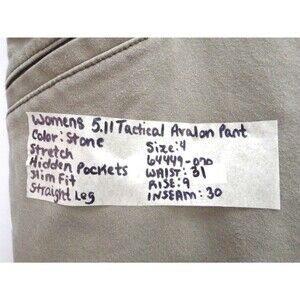 Womens 5.11 Tactical Avalon Pant
Color: Stone
Stretch
Hidden Pockets
Slim Fit
Straight Leg
Size: 4
64449-070
WAIST: 31
RISE: 9
INSEAM: 30